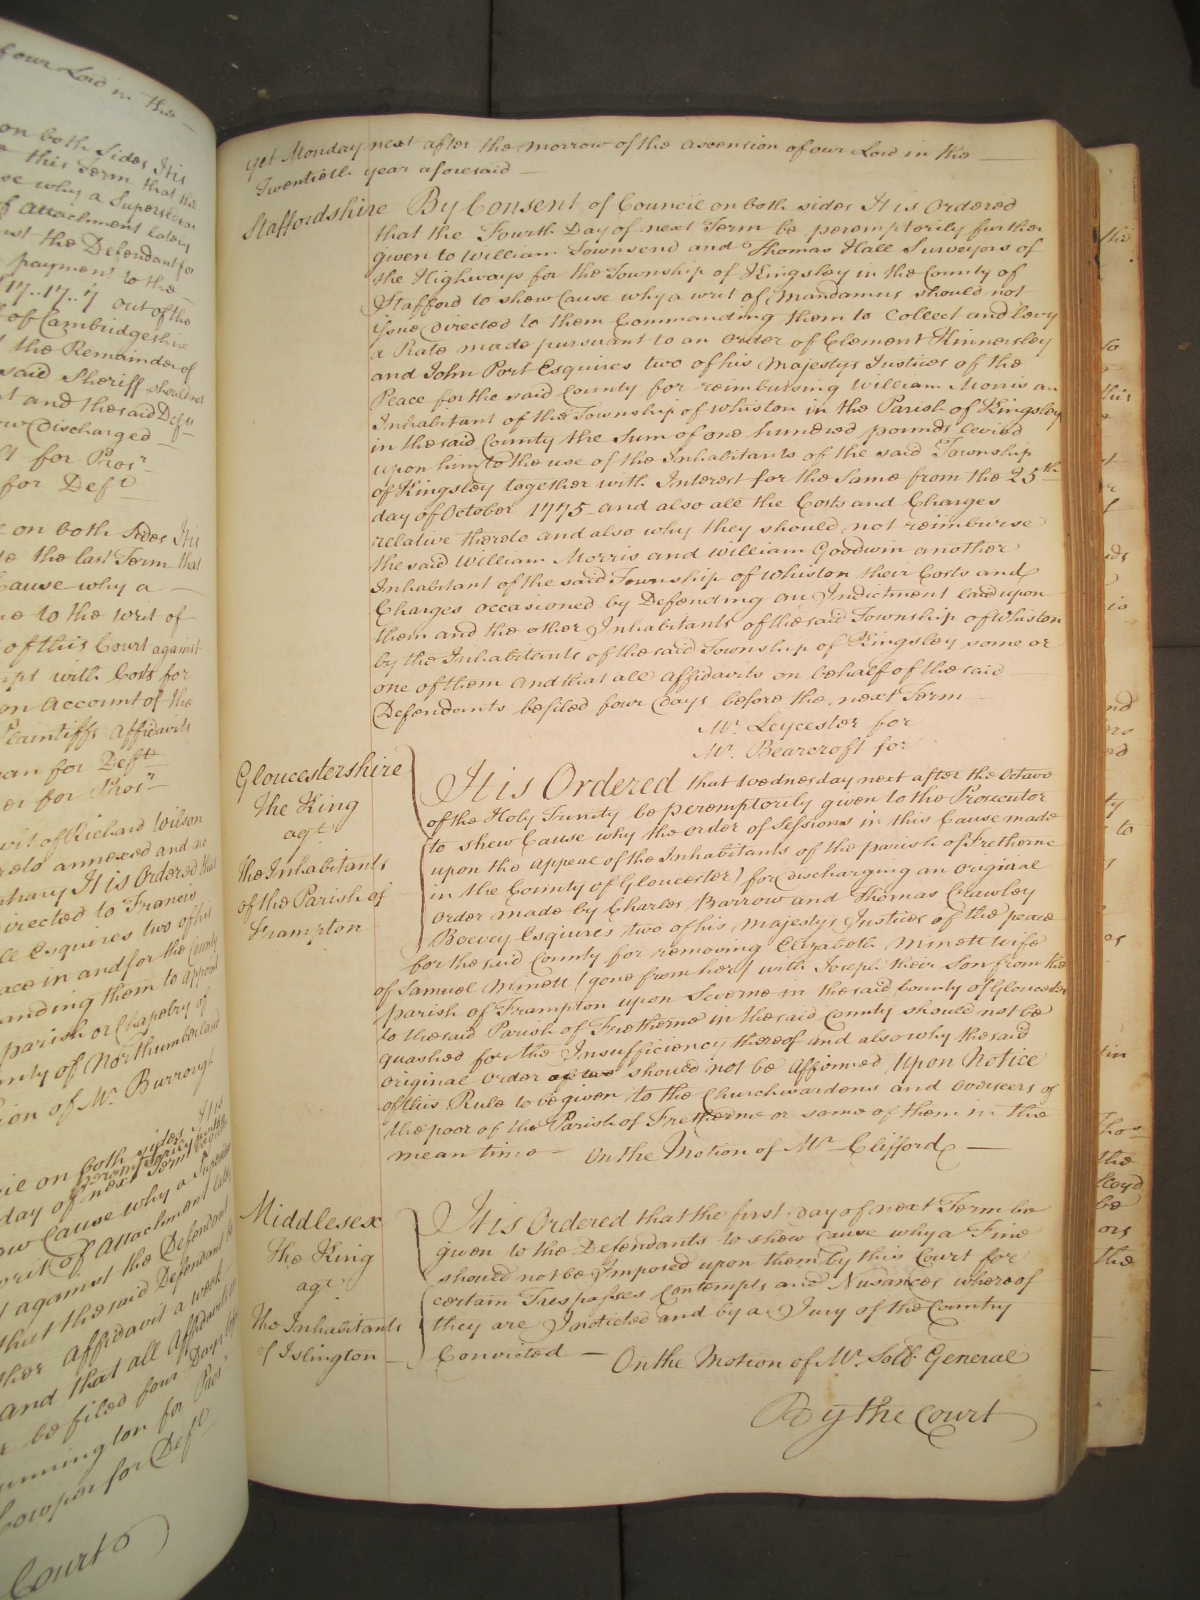 of our Lord in the
on both sides It is
this Term that the
se why a Supersedeas
of attachment lately
nst the Defendant for
payment to the
17..17..7 out of the
of Cambridgeshire
the Remainder of
said Sheriff should not
t and the said Deft
ow Discharged
for Pros.r
for Deft
e on both sides It is
e the last Term that
Cause why a
ue to the writ of
of this Court against
mpt with Costs for
on Account of the
Plaintiffs Affidavits
an for Deft
er for Pros.r
vit of Richard Wilson
reto annexed and no
ntrary It is Ordered that
irected to Francis
lle Esquires two of his
ace in and for the County
anding them to appoint
parish or Chapelry of
nty of Northumberland
ion of Mr. Burrough
cil on both sides It is
peremptorily
day of next Term
ow Cause why a Supersedeas
writ of Attachment lately
against the Defendant
that the said Defendant
their Affidavit a week
and that all Affidavits
be filed four Days
nnington for Pros.r
Cowper for Deft
Court
yet Monday next after the morrow of the ascension of our Lord in the
Twentieth year aforesaid
Staffordshire By Consent of Council on both sides It is Ordered
that the Fourth Day of next Term be peremptorily further
given to William Townsend and Thomas Hall Surveyors of
the Highways for the Township of Kingsley in the County of
Stafford to shew Cause why a writ of Mandamus should not
issue Directed to them Commanding them to Collect and levy
a Rate made pursuant to an order of Clement Kinnersley
and John Port Esquires two of his Majestys Justices of the
Peace for the said County for reimbursing William Morris an
Inhabitant of the Township of Whiston in the Parish of Kingsley
in the said County the Sum of one hundred pounds levied
upon him to the use of the Inhabitants of the said Township
of Kingsley together with Interest for the same from the 25th
day of October 1775 and also all the Costs and Charges
relative thereto and also why they should not reimburse
the said William Morris and William Goodwin another
Inhabitant of the said Township of Whiston their Costs and
Charges occasioned by Defending an Indictment laid upon
them and the other Inhabitants of the said Township of Whiston
by the Inhabitants of the said Township of Kingsley some or
one of them And that all affidavits on behalf of the said
Defendants be filed four days before the next Term
Mr. Leycester for
Mr. Bearcroft for
Gloucestershire
The King
agt
The Inhabitants
of the Parish of
Frampton
It is Ordered that Wednesday next after the Octave
of the Holy Trinity be peremptorily given to the Prosecutor
to shew Cause why the order of Sessions in this Cause made
upon the appeal of the Inhabitants of the parish of Fretherne
in the County of Gloucester) for discharging an original
order made by Charles Barrow and Thomas Crawley
Boevey Esquires two of his Majestys Justices of the peace
for the said County for removing Elizabeth Minett wife
of Samuel Minett (gone from her) with Joseph their Son from the
parish of Frampton upon Severne in the said County of Gloucester
to the said Parish of Fretherne in the said County should not be
quashed for the Insufficiency thereof and also why the said
original order should not be Affirmed Upon Notice
of this Rule to be given to the Churchwardens and Overseers of
the poor of the Parish of Fretherne or some of them in the
mean time On the Motion of Mr Clifford
Middlesex
The King
agt
The Inhabitants
of Islington
It is Ordered that the first Day of next Term be
given to the Defendants to shew Cause why a Fine
should not be Imposed upon them by this Court for
certain Trespasses Contempts and Nusances whereof
they are Indicted and by a Jury of the Country
Convicted On the Motion of Mr. Soll.r General
By the Court